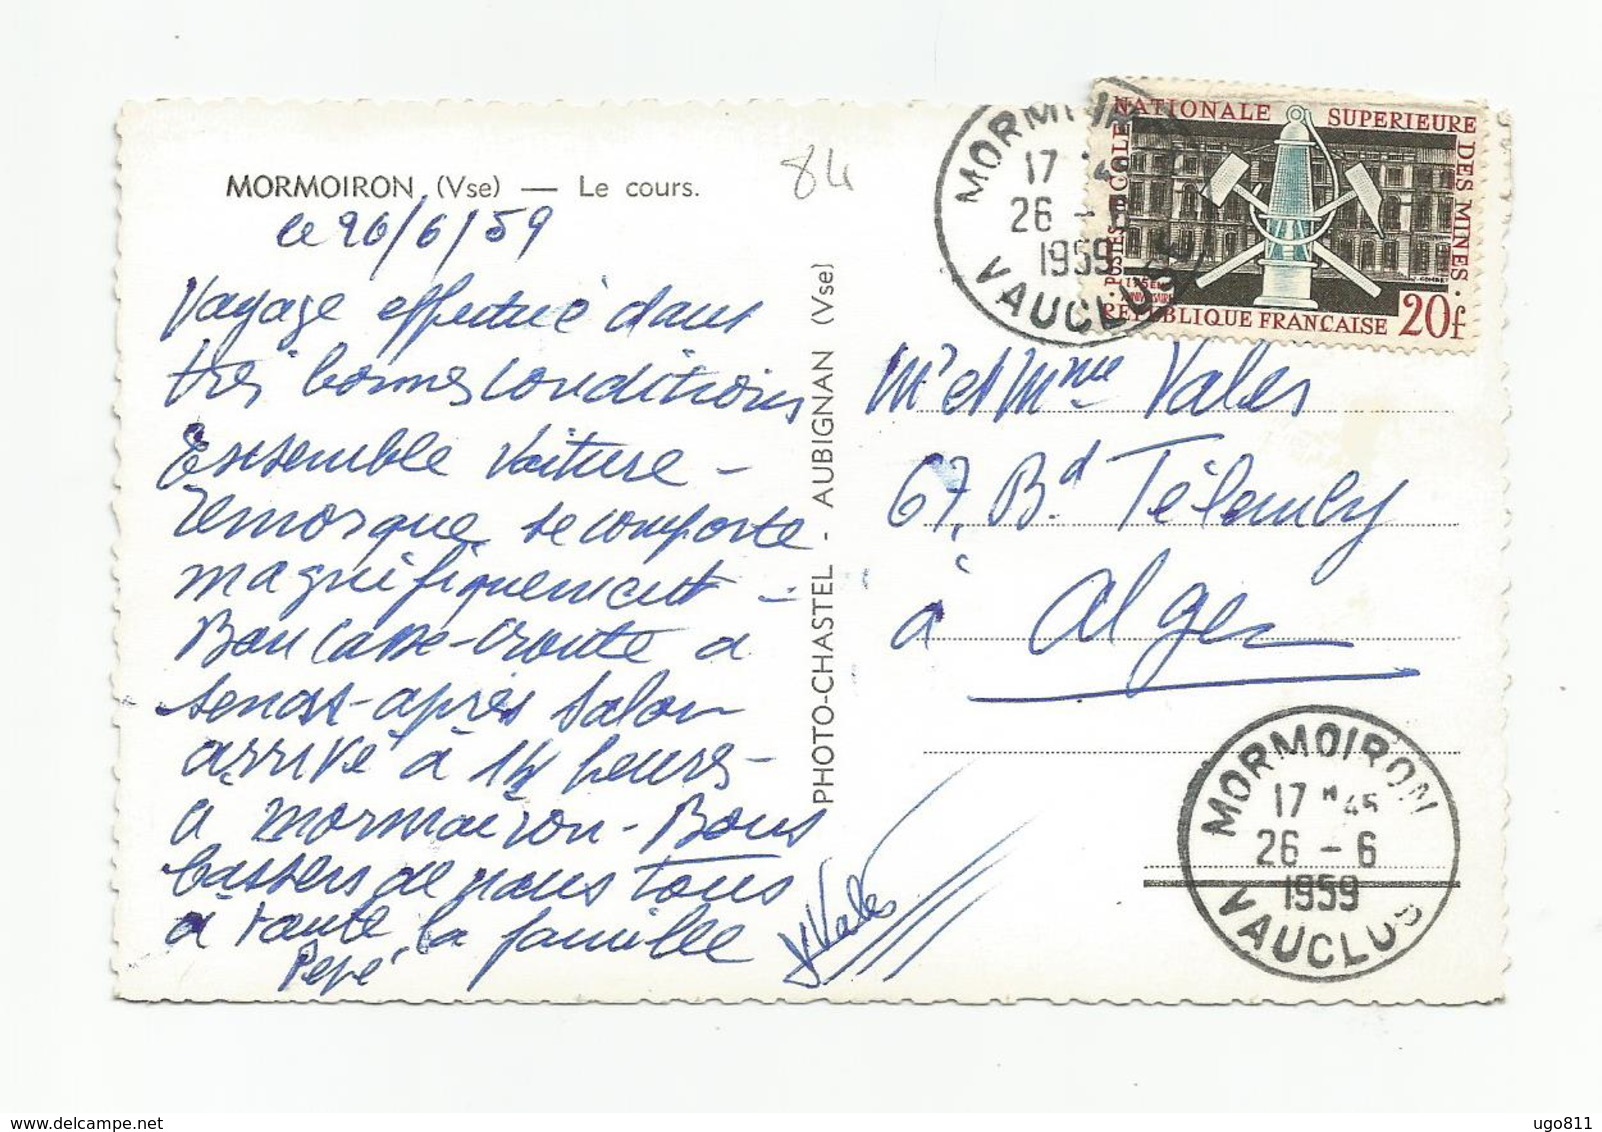 MORMOIRON (Vse) — Le cours.
84
le 26/6/59
Voyage effectué dans
très bonnes conditions
Ensemble voiture -
remorque se comporte
magnifiquement -
Bon casse-croute a
Senas-après Salon
arrivé à 14 heures -
a mormoiron - Bons
baisers de nous tous
a toute la famille
Pépé
Vales
PHOTO-CHASTEL - AUBIGNAN (Vse)
MORMOIRON
17 H 45
26 - 6
1959
VAUCLUSE
ECOLE NATIONALE SUPERIEURE DES MINES
POSTES
175E
ANNIVERSAIRE
REPUBLIQUE FRANCAISE 20f
Mr et Mme Vales
67, Bd Télemly
à Alger
MORMOIRON
17 H 45
26 - 6
1959
VAUCLUSE
delcampe.net
ugo811